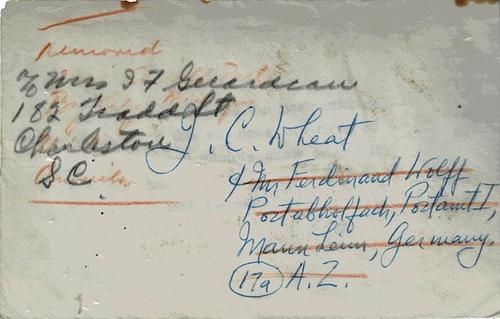 Removed
℅ Mrs I F Girardeau
182 Tradd St
Charleston
S C.
J. C. Wheat
℅ Mr Ferdinand Wolff
Postabholfach, Postamt I,
Mannheim, Germany.
17a A. Z.